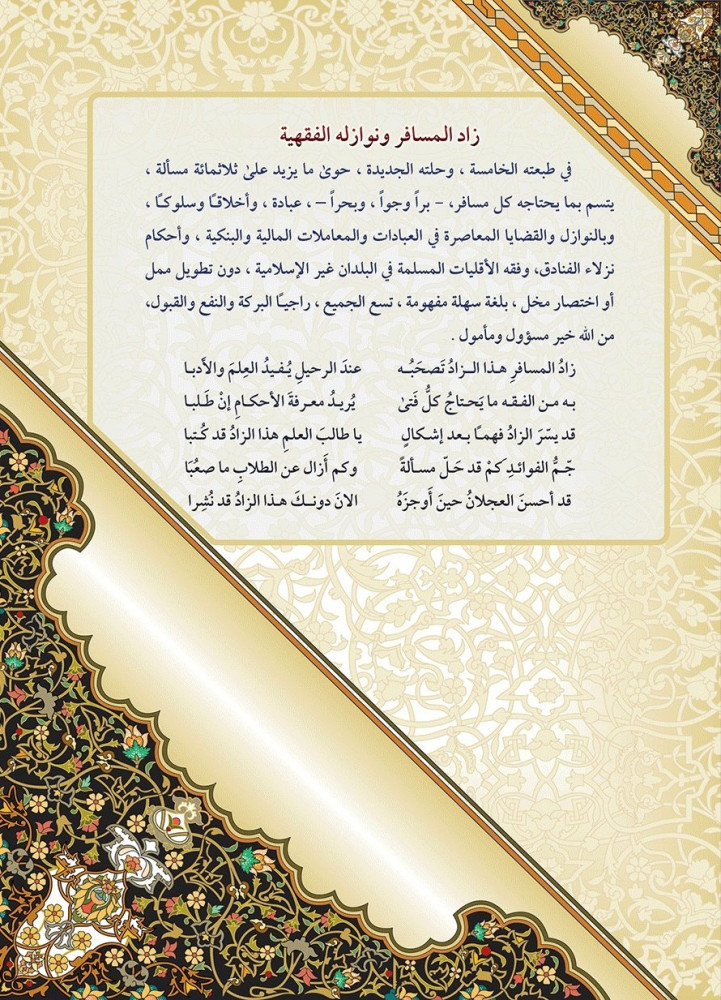 زاد المسافر ونوازله الفقهية
في طبعته الخامسة ، وحلته الجديدة ، حوىٰ ما يزيد علىٰ ثلاثمائة مسألة ،
يتسم بما يحتاجه كل مسافر، - براً وجواً ، وبحراً – ، عبادة ، وأخلاقًا وسلوكًا ،
وبالنوازل والقضايا المعاصرة في العبادات والمعاملات المالية والبنكية ، وأحكام
نزلاء الفنادق، وفقه الأقليات المسلمة في البلدان غير الإسلامية ، دون تطويل ممل
أو اختصار مخل ، بلغة سهلة مفهومة ، تسع الجميع ، راجيًا البركة والنفع والقبول،
من الله خير مسؤول ومأمول .
زادُ المسافرِ هذا الـزادُ تَصحَبُـه عندَ الرحيلِ يُفيدُ العِلمَ والأَدبا
به مـن الفقـه ما يَحتـاجُ كلُّ فَتىٰ يُريـدُ معـرفةَ الأحكـامِ إنْ طَـلبـا
قد يسّرَ الزادُ فهمًـا بـعد إشكـالٍ يا طالبَ العلمِ هذا الزادُ قد كُـتبا
جَـمُّ الفوائـدِ كمْ قد حَـلّ مسـألةً وكم أَزال عن الطلابِ ما صعُبَا
قد أحسنَ العجلانُ حينَ أَوجزَهُ الانَ دونـكَ هـذا الزادُ قد نُشِرا